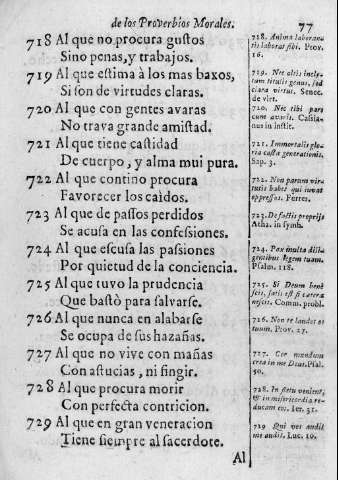 de los Proverbios Morales. 77
718 Al que no procura gustos
Sino penas, y trabajos.
719 Al que estima à los mas baxos,
Si son de virtudes claras.
720 Al que con gentes avaras
No trava grande amistad.
721 Al que tiene castidad
De cuerpo, y alma mui pura.
722 Al que contino procura
Favorecer los caìdos.
723 Al que de passos perdidos
Se acusa en las confessiones.
724 Al que escusa las passiones
Por quietud de la conciencia.
725 Al que tuvo la prudencia
Que bastò para salvarse.
726 Al que nunca en alabarse
Se ocupa de sus hazañas.
727 Al que no vive con mañas
Con astucias, ni fingir.
728 Al que procura morir
Con perfecta contricion.
729 Al que en gran veneracion
Tiene siempre al sacerdote.
Al
718. Anima laboran-
tis laborat sibi. Prov.
16.
719. Nec aliis incly-
tum titulis genus, sed
clara virtus. Senec.
de virt.
720. Nec tibi pars
cum avaris. Cassia-
nus in instit.
721. Immortalis glo-
ria casta generationis.
Sap. 3.
722. Non parum vir-
tutis habet qui iuvat
oppressos. Ferres.
723. De factis proprijs
Atha. in symb.
724. Pax multa dili-
gentibus legem tuam.
Psalm. 118.
725. Si Deum bene
scis, satis est si cætera
nescis. Comm. probl.
726. Non te laudet os
tuum. Prov. 27.
727. Cor mundum
crea in me Deus. Psal.
50.
728. In fletu venient,
& in misericordia re-
ducam eos. Ier. 31.
729 Qui vos audit
me audit. Luc. 10.